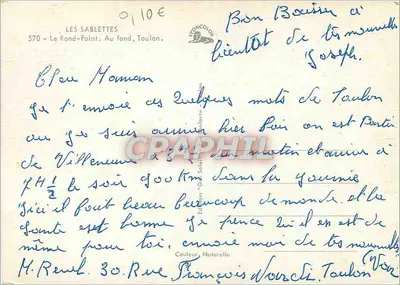 LES SABLETTES
570 - Le Rond-Point. Au fond, Toulon.
0,10€
Bon Baisser a
bientot de tes nouvelles
Joseph.
Cher Maman
Je t'envoie ces quelques mots de Toulon
ou je suis arriver hier soir on est Partir
de Villeneuve a du matin et arriver a
7H 1/2 le soir 900 Km dans la journee
ici il fait beau beaucoup de monde. et la
sante est bonne je pence qu'il en est de
même pour toi, envoie moi de tes nouvelles
M. Revel. 30. Rue François Toulon (Var
CPAPHIL
Couleur Naturelle